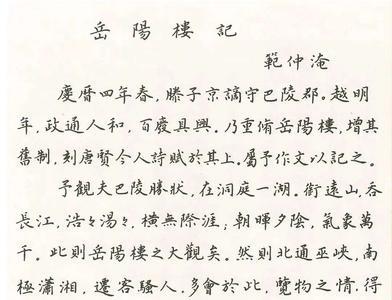 岳陽樓記
範仲淹
慶曆四年春，滕子京謫守巴陵郡。越明
年，政通人和，百廢具興。乃重脩岳陽樓，增其
舊制，刻唐贤今人詩賦於其上。屬予作文以記之。
予觀夫巴陵勝狀，在洞庭一湖。銜遠山，吞
長江，浩々湯々，橫無際涯；朝暉夕陰，氣象萬
千。此則岳陽樓之大觀矣。然則北通巫峽，南
極瀟湘，遷客騷人，多會於此，覽物之情，得